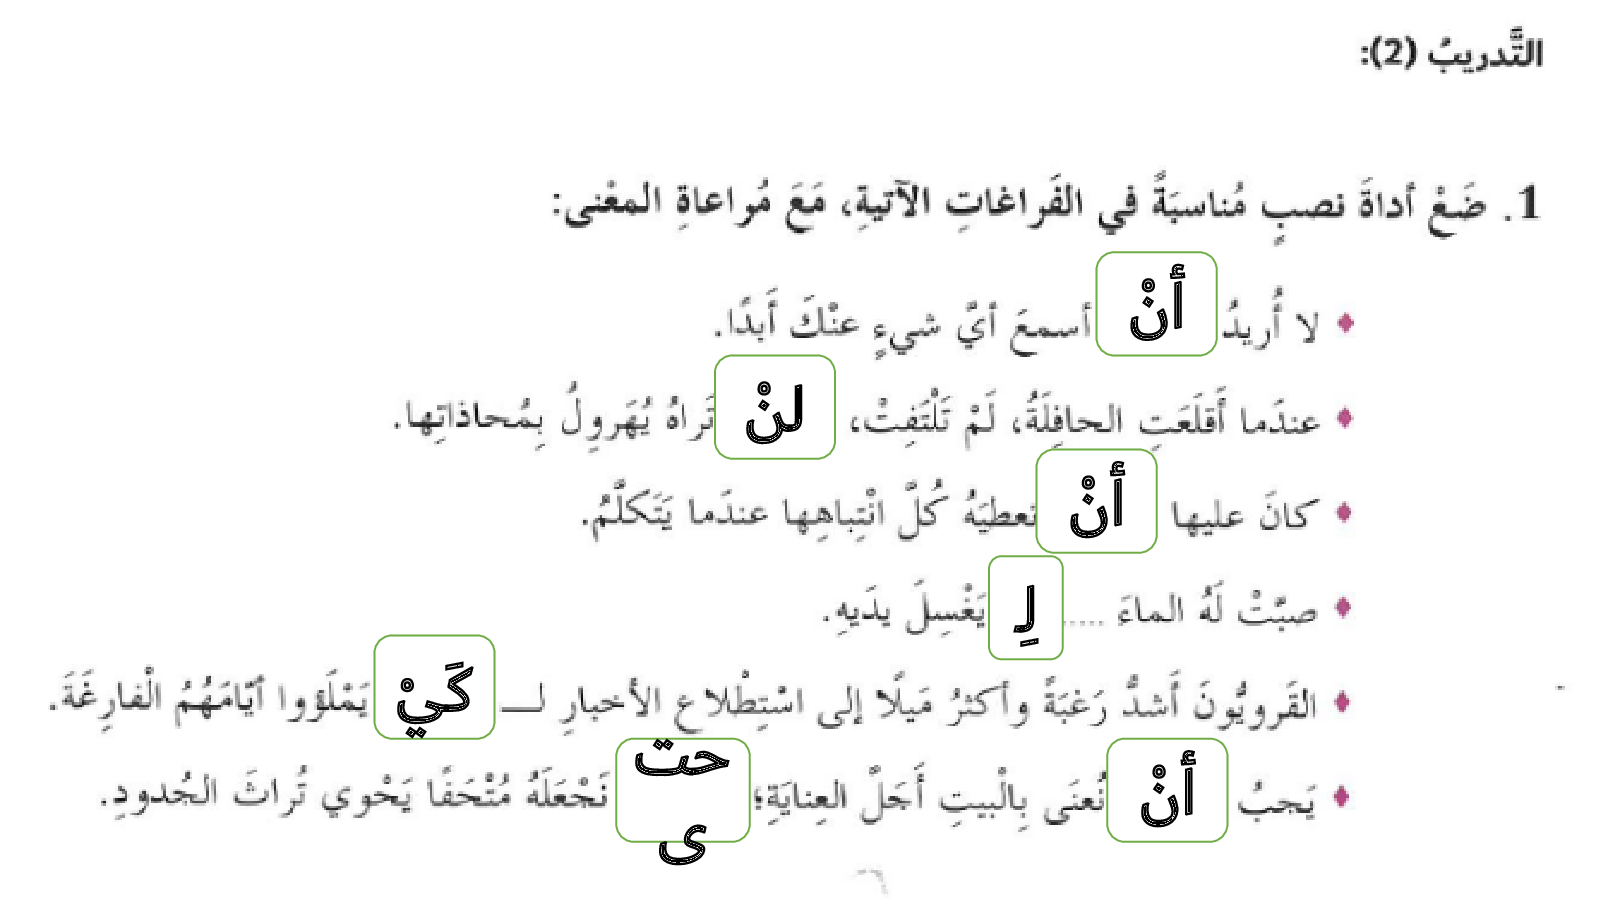 التَّدريبُ (2):
1. ضَعْ أداةَ نصبٍ مُناسبَةً في الفَراغاتِ الآتيةِ، مَعَ مُراعاةِ المعْنى:
♦ لا أُريدُ أنْ أسمعَ أيَّ شيءٍ عنْكَ أَبدًا.
♦ عندَما أَقلَعَتِ الحافِلَةُ، لَمْ تَلْتَفِتْ، لنْ تَراهُ يُهَروِلُ بِمُحاذاتِها.
♦ كانَ عليها أنْ تعطيَهُ كُلَّ انْتِباهِها عندَما يَتَكلَّمُ.
♦ صبَّتْ لَهُ الماءَ ..... لِ يَغْسِلَ يدَيهِ.
♦ القَرويُّونَ أَشدُّ رَغبَةً وأكثرُ مَيلًا إلى اسْتِطْلاعِ الأخبارِ لـــ كَيْ يَمْلَؤوا أيّامَهُمُ الْفارِغَةَ.
♦ يَجبُ أنْ نُعنَى بِالْبيتِ أَجَلَّ العِنايَةِ؛ حتى نَجْعَلَهُ مُتْحَفًا يَحْوي تُراثَ الجُدودِ.